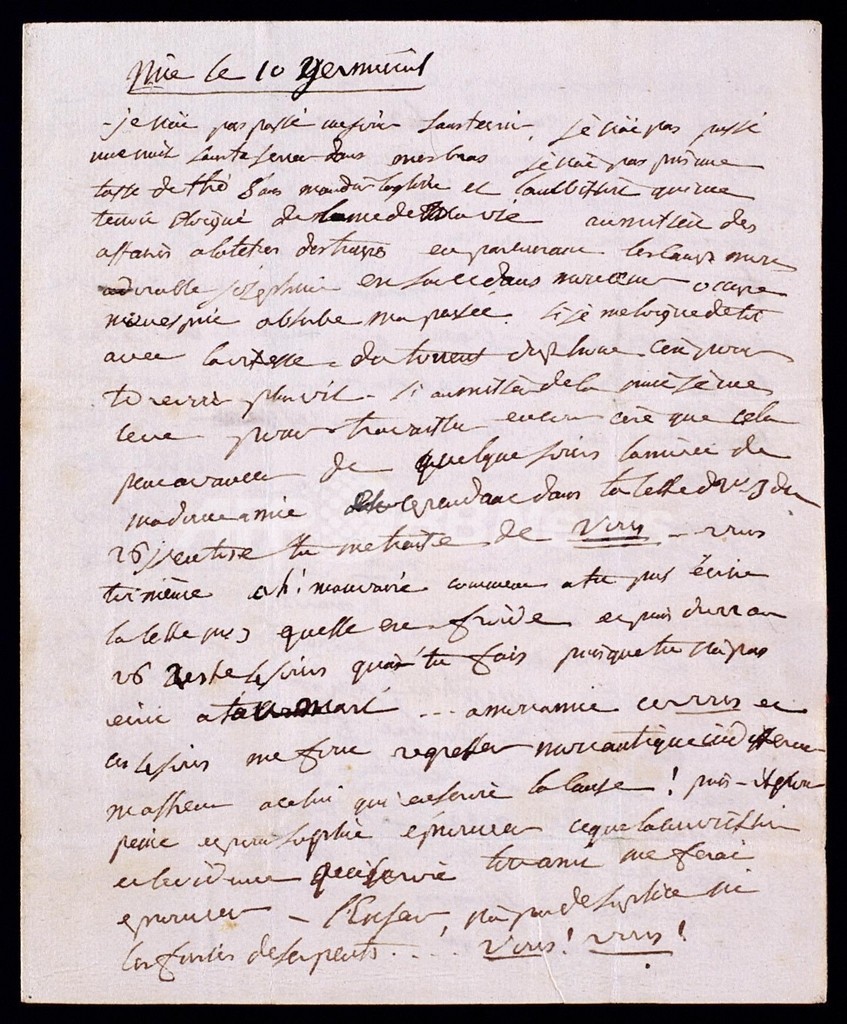 Nice le 10 Germinal
- je n'ai pas passé un jour sans t'aimer, je n'ai pas passé
une nuit sans te serrer dans mes bras je n'ai pas pris une
tasse de thé sans maudir la gloire et l'ambition qui me
tienne éloigné de l'ame de ma vie au milieu des
affaires a la tete des troupes en parcourant les camps mon
adorable josephine est seule dans mon cœur occupe
mon esprit absorbe ma pensée. Si je m'eloigne de toi
avec la vitesse du torrent du rhone c'est pour
te revoir plus vite - si au milieu de la nuit je me
leve pour travailler encore c'est que cela
peut avancer de quelque jours l'arrivée de
ma douce amie et cependant dans ta lettre du 23 du
26 ventose tu me traite de vous - vous
toi même ah! mauvaise comment a tu pus écrire
la lettre quelle est froide et puis du 23 au
26 reste 4 jours qu'as tu fais puisque tu n'ai pas
écrit a ton mari ... a mon amie ce vous et
ces 4 jours me font regretter mon antique indifference
malheur a celui qui en serai la cause ! puis - il pour
peine et pour suplice éprouver ce que la conviction
et l'evidence qui servit ton ami me ferai
eprouver - l'Enfer n'a pas de suplice ni
les furies de serpents .... Vous! vous!